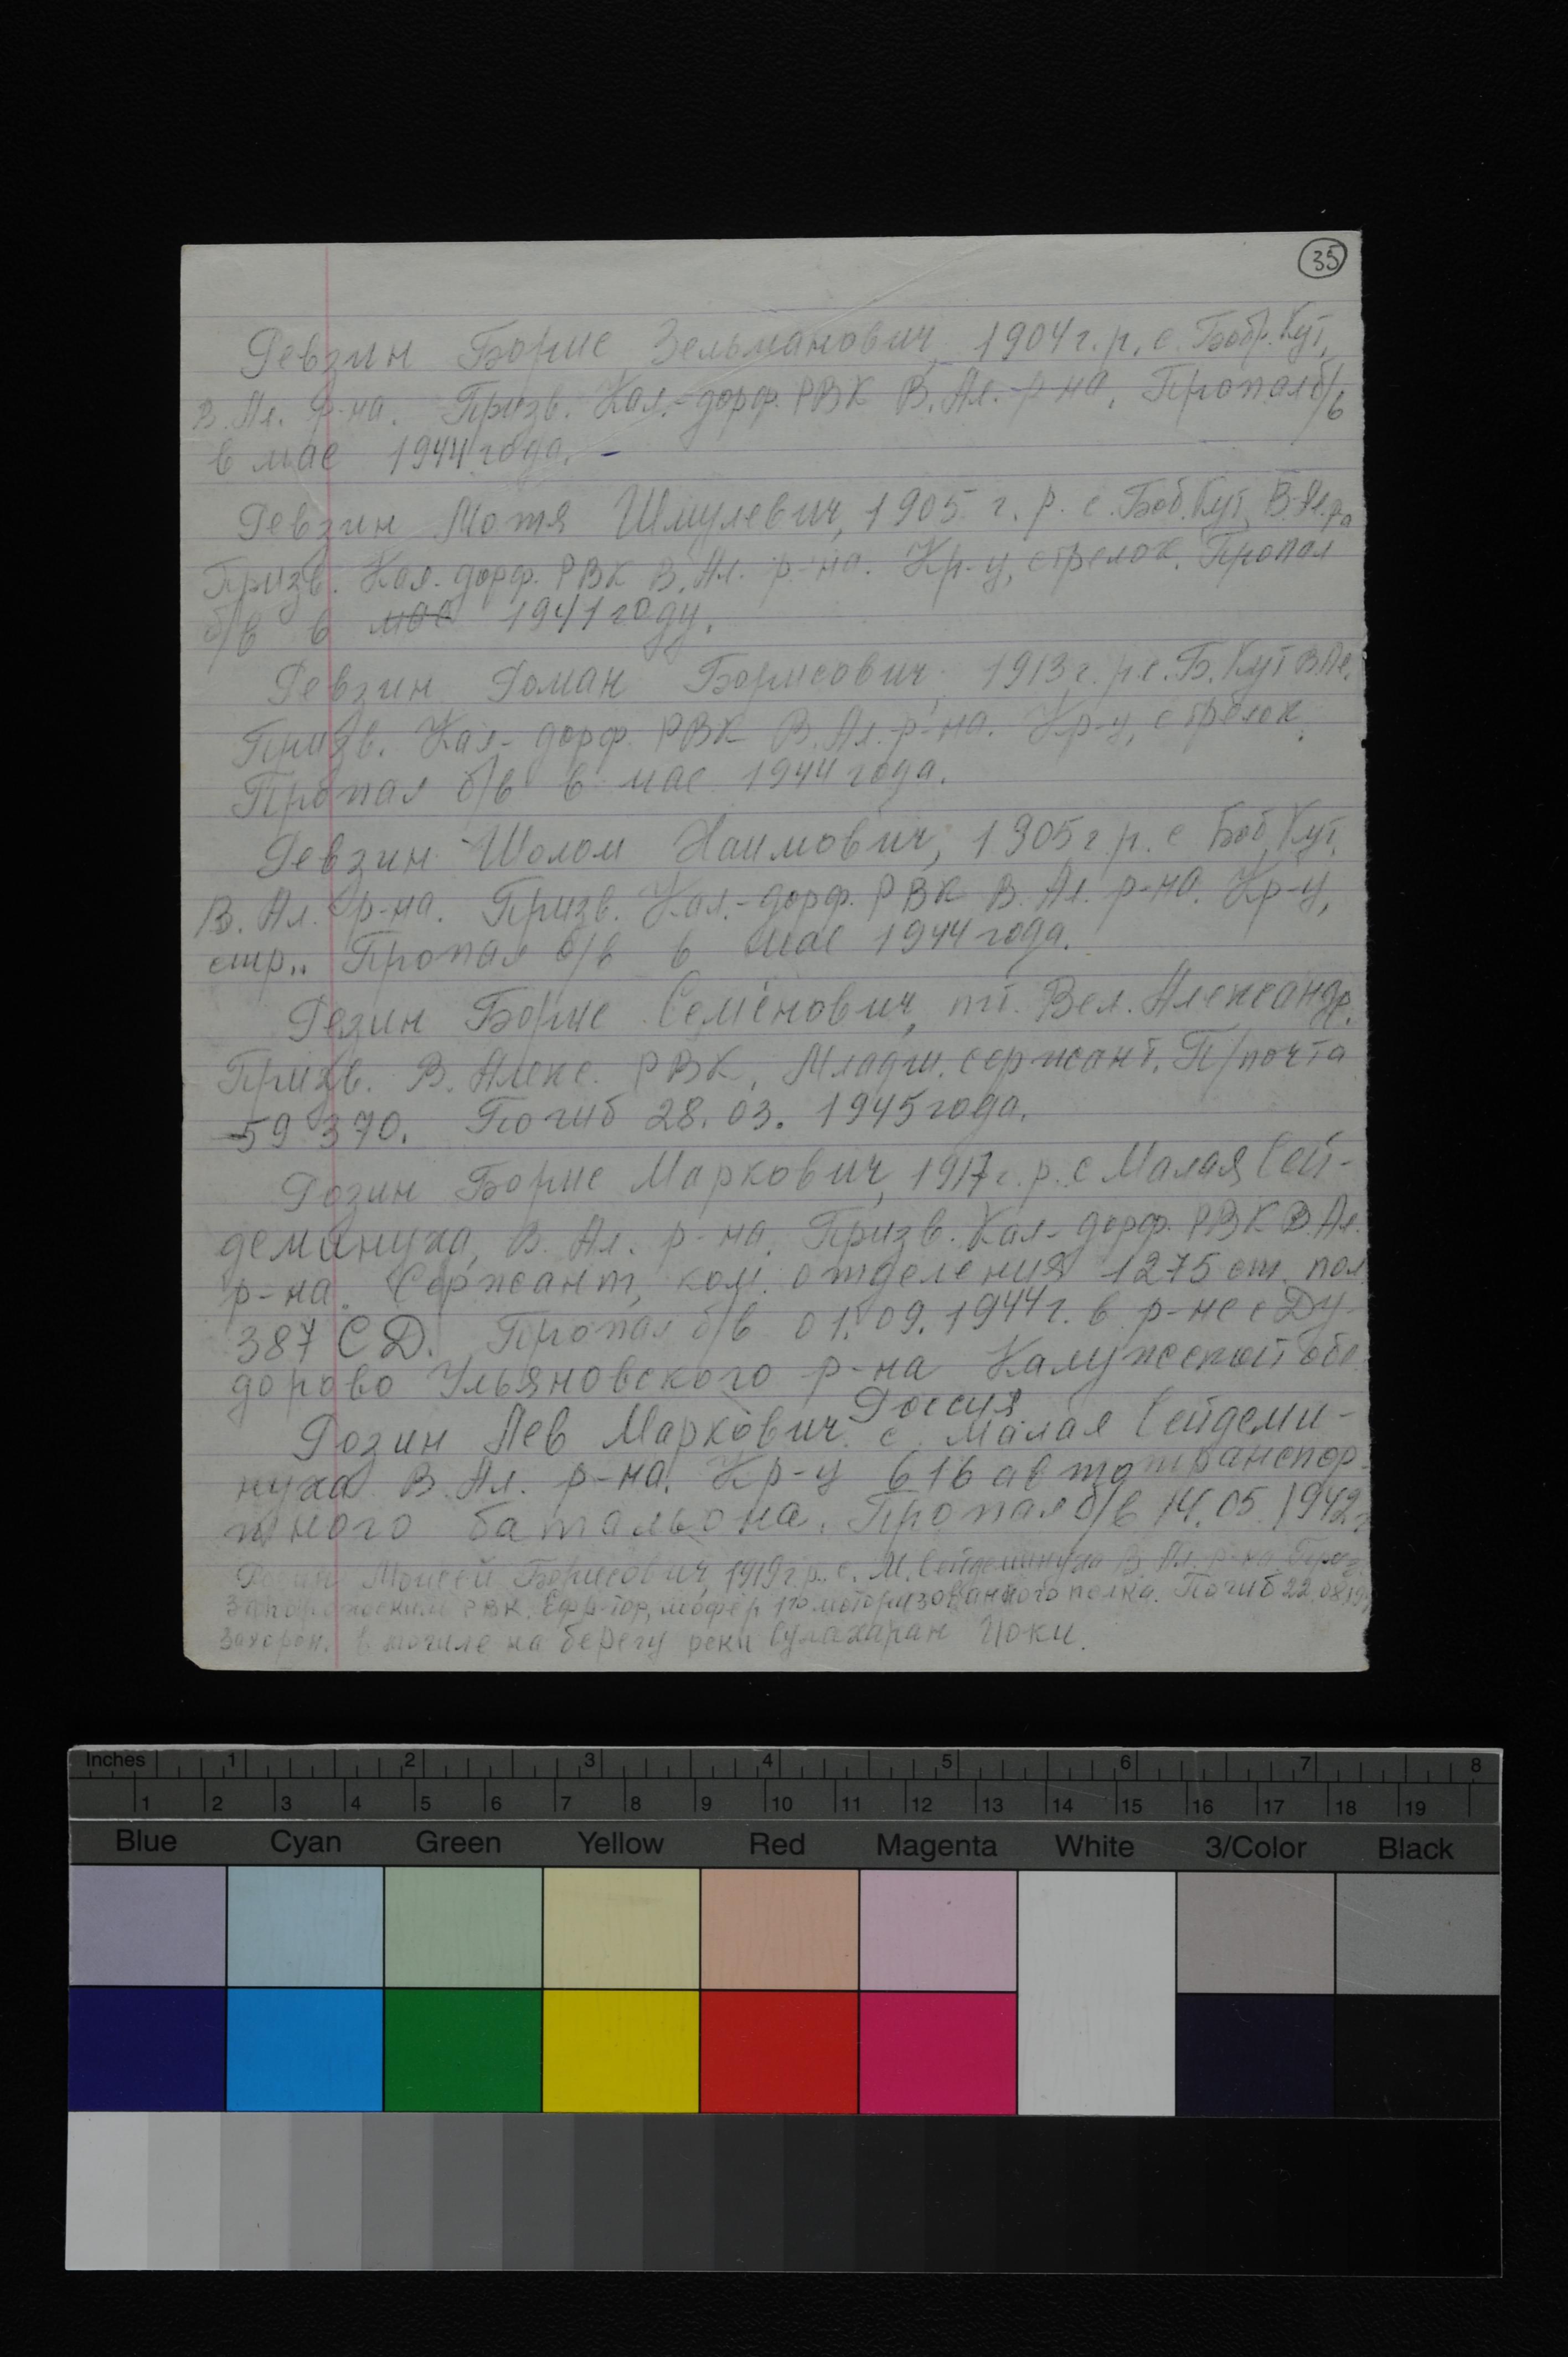 35
Ревзин Борис Зельманович, 1904 г. р. с. Бобр. Кут,
В. Ал. р-на. Призв. Кал.-дорф. РВК В. Ал.-р-на. Пропал б/в
в мае 1944 года. -
Ревзин Мотя Шмулевич, 1905 г. р. с. Боб. Кут, В. Ал. р-на
Призв. Кал. дорф. РВК В. Ал. р-на. Кр-ц, стрелок. Пропал
б/в в мае 1941 году.
Ревзин Роман Борисович, 1913 г. р. с. Б. Кут В. Ал.
Призв. Кал-дорф. РВК В. Ал. р-на. Кр-ц, стрелок.
Пропал б/в в мае 1944 года.
Ревзин Шолом Хаимович, 1905 г. р. с Боб. Кут,
В. Ал. р-на. Призв. Кал.-дорф. РВК В. Ал. р-на. Кр-ц,
стр.. Пропал б/в в мае 1944 года.
Резин Борис Семёнович, пгт. Вел. Александр.
Призв. В. Алекс. РВК, Младш. сержант. П/почта
59370. Погиб 28.03.1945 года.
Розин Борис Маркович, 1917 г. р. с Малая Сей-
деминуха, В. Ал. р-на. Призв. Кал-дорф. РВК В. Ал.
р-на. Сержант, ком. отделения 1275 ст. пол
387 СД. Пропал б/в 01.09.1944 г. в р-не с Ду-
дорово Ульяновского р-на Калужской обл
Россия
Розин Лев Маркович. с. Малая Сейдеми-
нуха В. Ал. р-на. Кр-ц 616 автотранспор-
тного батальона. Пропал б/в 14.05.1942г
Розин Моисей Борисович, 1919 г. р. с. М. Сейдеминуха В. Ал. р-на. Призв.
Запорожским РВК. Ефр-тор, шофёр 1го моторизованного полка. Погиб 22.08.19
Захорон. в могиле на берегу реки